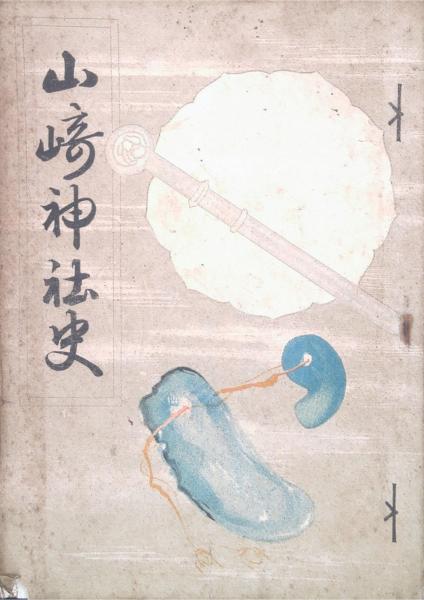 山﨑神社史